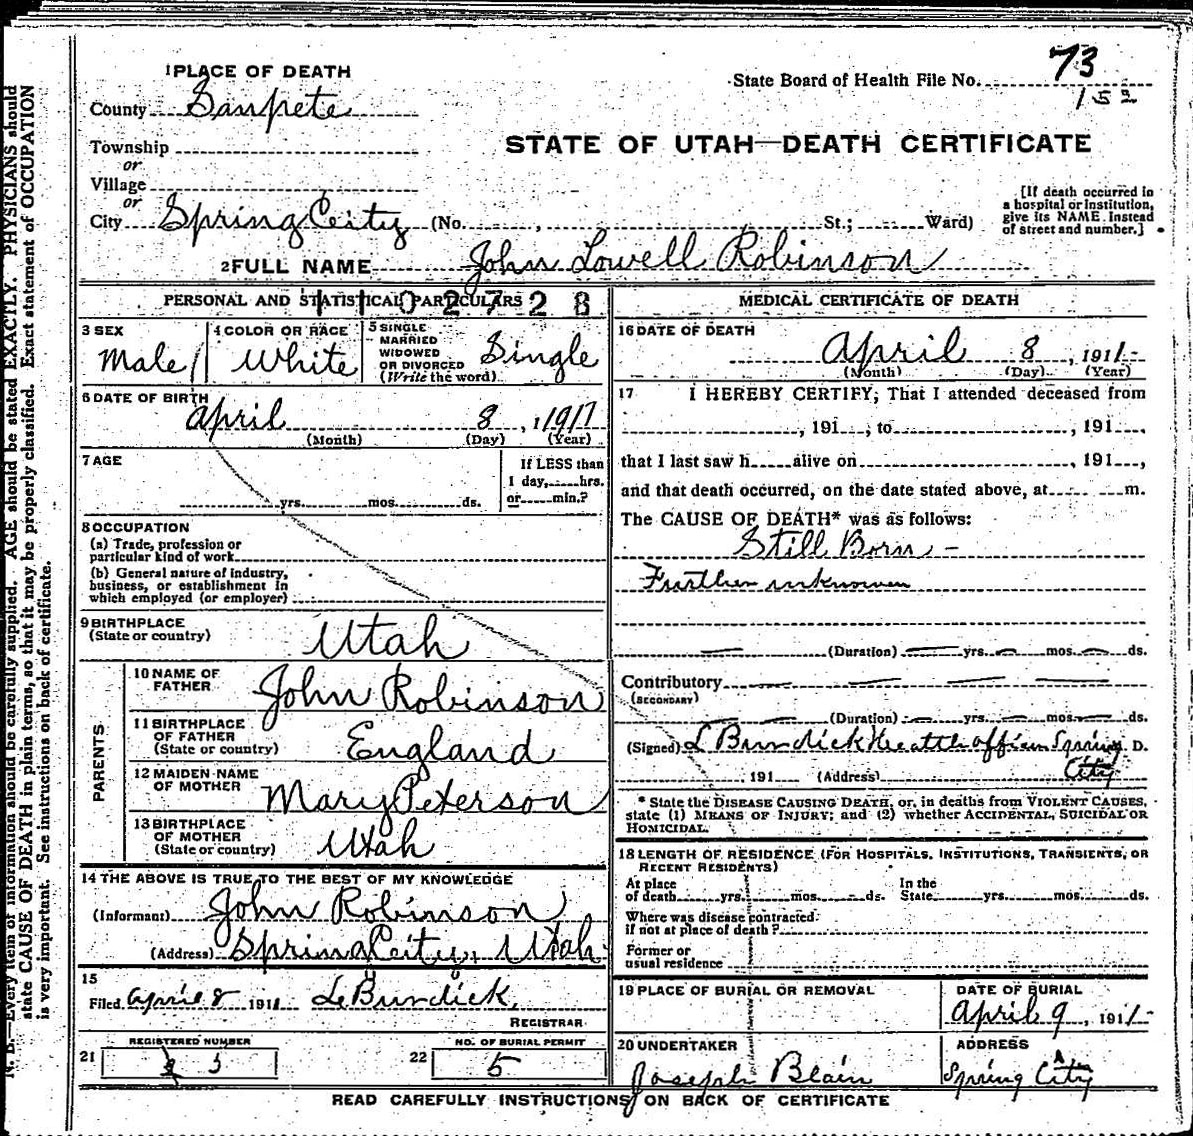 1 PLACE OF DEATH
County Sanpete
State Board of Health File No. 73
152
Township
or
Village
or
City Spring Ceity (No. , St.; Ward)
STATE OF UTAH—DEATH CERTIFICATE
[If death occurred in
a hospital or institution,
give its NAME. Instead
of street and number.]
2 FULL NAME John Lowell Robinson
PERSONAL AND STATISTICAL PARTICULARS
1102728
3 SEX
Male
4 COLOR OR RACE
White
5 SINGLE
MARRIED
WIDOWED
OR DIVORCED
(Write the word)
Single
6 DATE OF BIRTH
April 8, 1911
(Month) (Day) (Year)
7 AGE
yrs. mos. ds.
If LESS than
1 day, hrs.
or min.?
8 OCCUPATION
(a) Trade, profession or
particular kind of work
(b) General nature of industry,
business, or establishment in
which employed (or employer)
9 BIRTHPLACE
(State or country)
Utah
PARENTS
10 NAME OF
FATHER
John Robinson
11 BIRTHPLACE
OF FATHER
(State or country)
England
12 MAIDEN NAME
OF MOTHER
Mary Peterson
13 BIRTHPLACE
OF MOTHER
(State or country)
Utah
14 THE ABOVE IS TRUE TO THE BEST OF MY KNOWLEDGE
(Informant) John Robinson
(Address) Spring Ceity, Utah
15
Filed April 8 1911 L Burdick
REGISTRAR
21 REGISTERED NUMBER
3
22 NO. OF BURIAL PERMIT
5
MEDICAL CERTIFICATE OF DEATH
16 DATE OF DEATH
April 8, 1911
(Month) (Day) (Year)
17 I HEREBY CERTIFY; That I attended deceased from
, 191 , to , 191 ,
that I last saw h alive on , 191 ,
and that death occurred, on the date stated above, at m.
The CAUSE OF DEATH* was as follows:
Still Born -
Further unknown
(Duration) yrs. mos. ds.
Contributory
(SECONDARY)
(Duration) yrs. mos. ds.
(Signed) L Burdick Health officer Spring D.
City
, 191 (Address)
* State the DISEASE CAUSING DEATH, or, in deaths from VIOLENT CAUSES,
state (1) MEANS OF INJURY; and (2) whether ACCIDENTAL, SUICIDAL OR
HOMICIDAL.
18 LENGTH OF RESIDENCE (FOR HOSPITALS, INSTITUTIONS, TRANSIENTS, OR
RECENT RESIDENTS)
At place
of death yrs. mos. ds.
In the
State yrs. mos. ds.
Where was disease contracted
if not at place of death?
Former or
usual residence
19 PLACE OF BURIAL OR REMOVAL
DATE OF BURIAL
April 9, 1911
20 UNDERTAKER
Joseph Blain
ADDRESS
Spring City
READ CAREFULLY INSTRUCTIONS ON BACK OF CERTIFICATE
N. B.—Every item of information should be carefully supplied. AGE should be stated EXACTLY. PHYSICIANS should
state CAUSE OF DEATH in plain terms, so that it may be properly classified. Exact statement of OCCUPATION
is very important. See instructions on back of certificate.